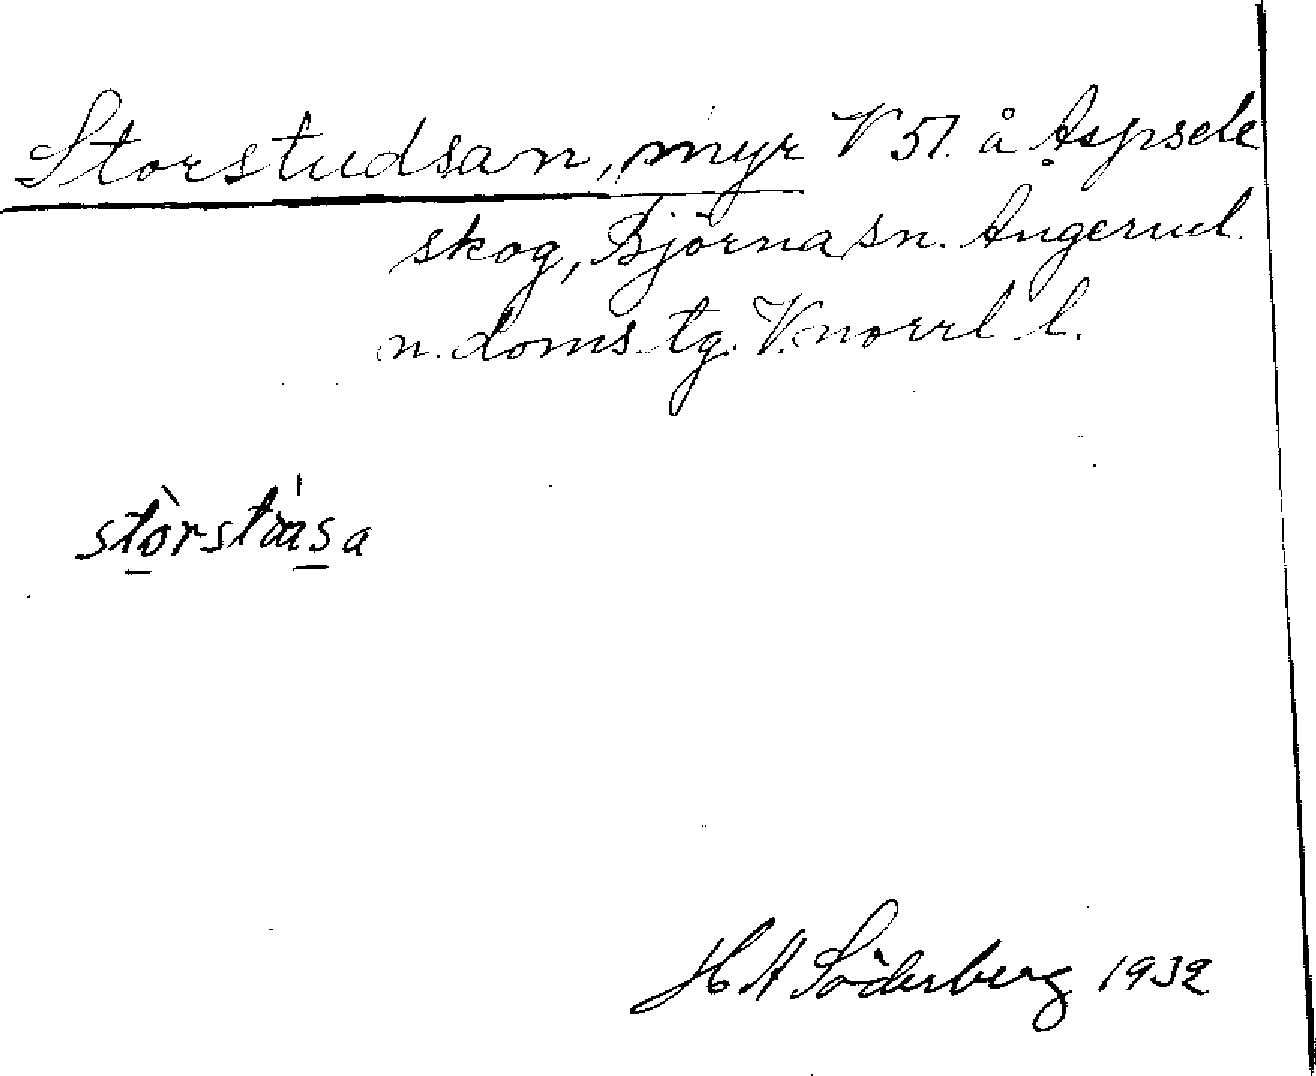 Storstudsan, myr V 51. å Aspsele
skog, Björna sn. Ångerml.
n. doms. tg. V.norrl l.
stòrstasa
H A Söderberg 1932